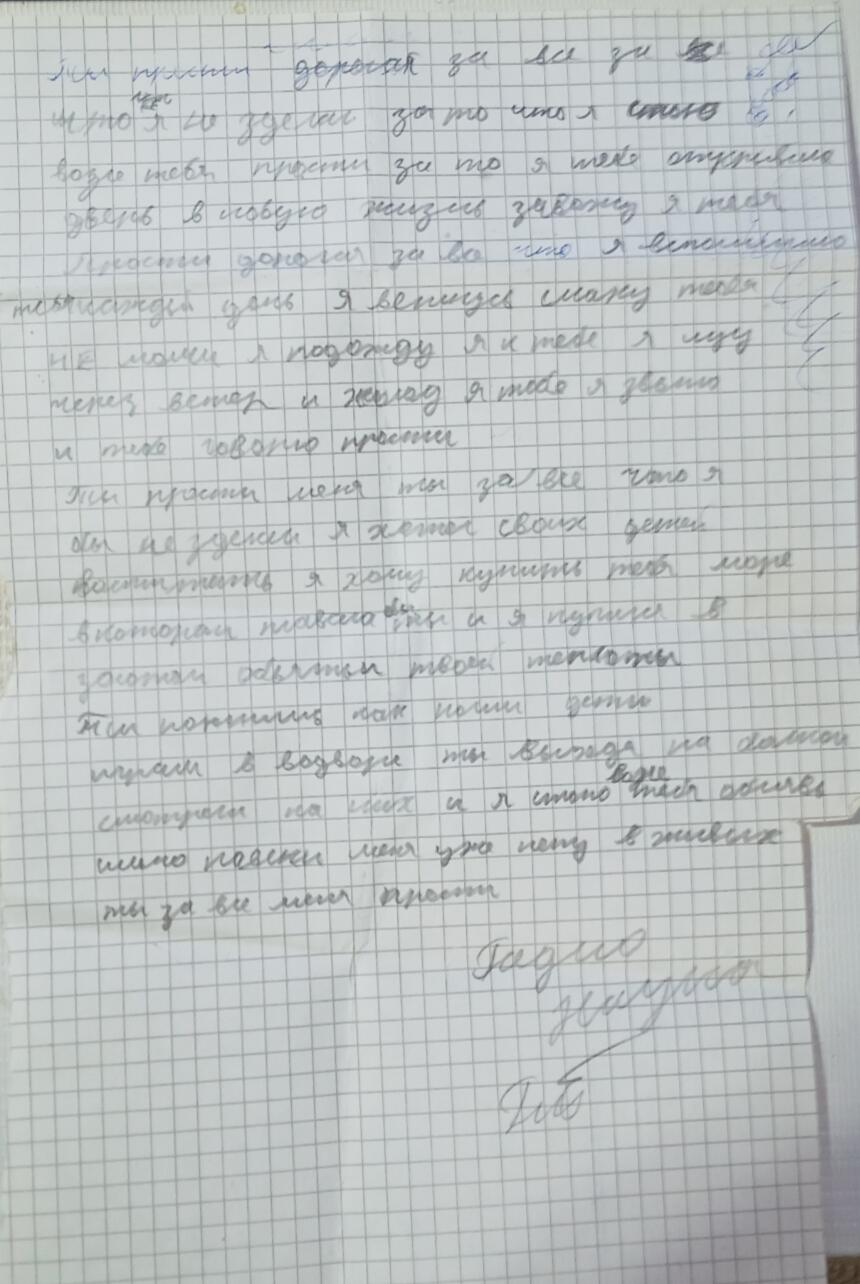 ты прости дорогая за все за
что я не зделал за то что я стою
возле тебя прости за то я тебе открываю
дверь в новую жизнь завожу я тебя
прости дорогая за во что я вспоминаю
тебя каждый день я вернусь тебя
не молчи я подожду я к тебе я лечу
через ветер и холод я тебе я звоню
и тебе говорю прости
ты прости меня ты за все что я
бы не зделал я хотел своих детей
воспитать я хочу купить тебя море
в котором плавала бы ты и я в
объятьи твоей теплоты
ты помнишь как наши дети
играли в ты на балкон
смотрела на них и я стою возле тебя
меня уже нету в живых
ты за все меня прости